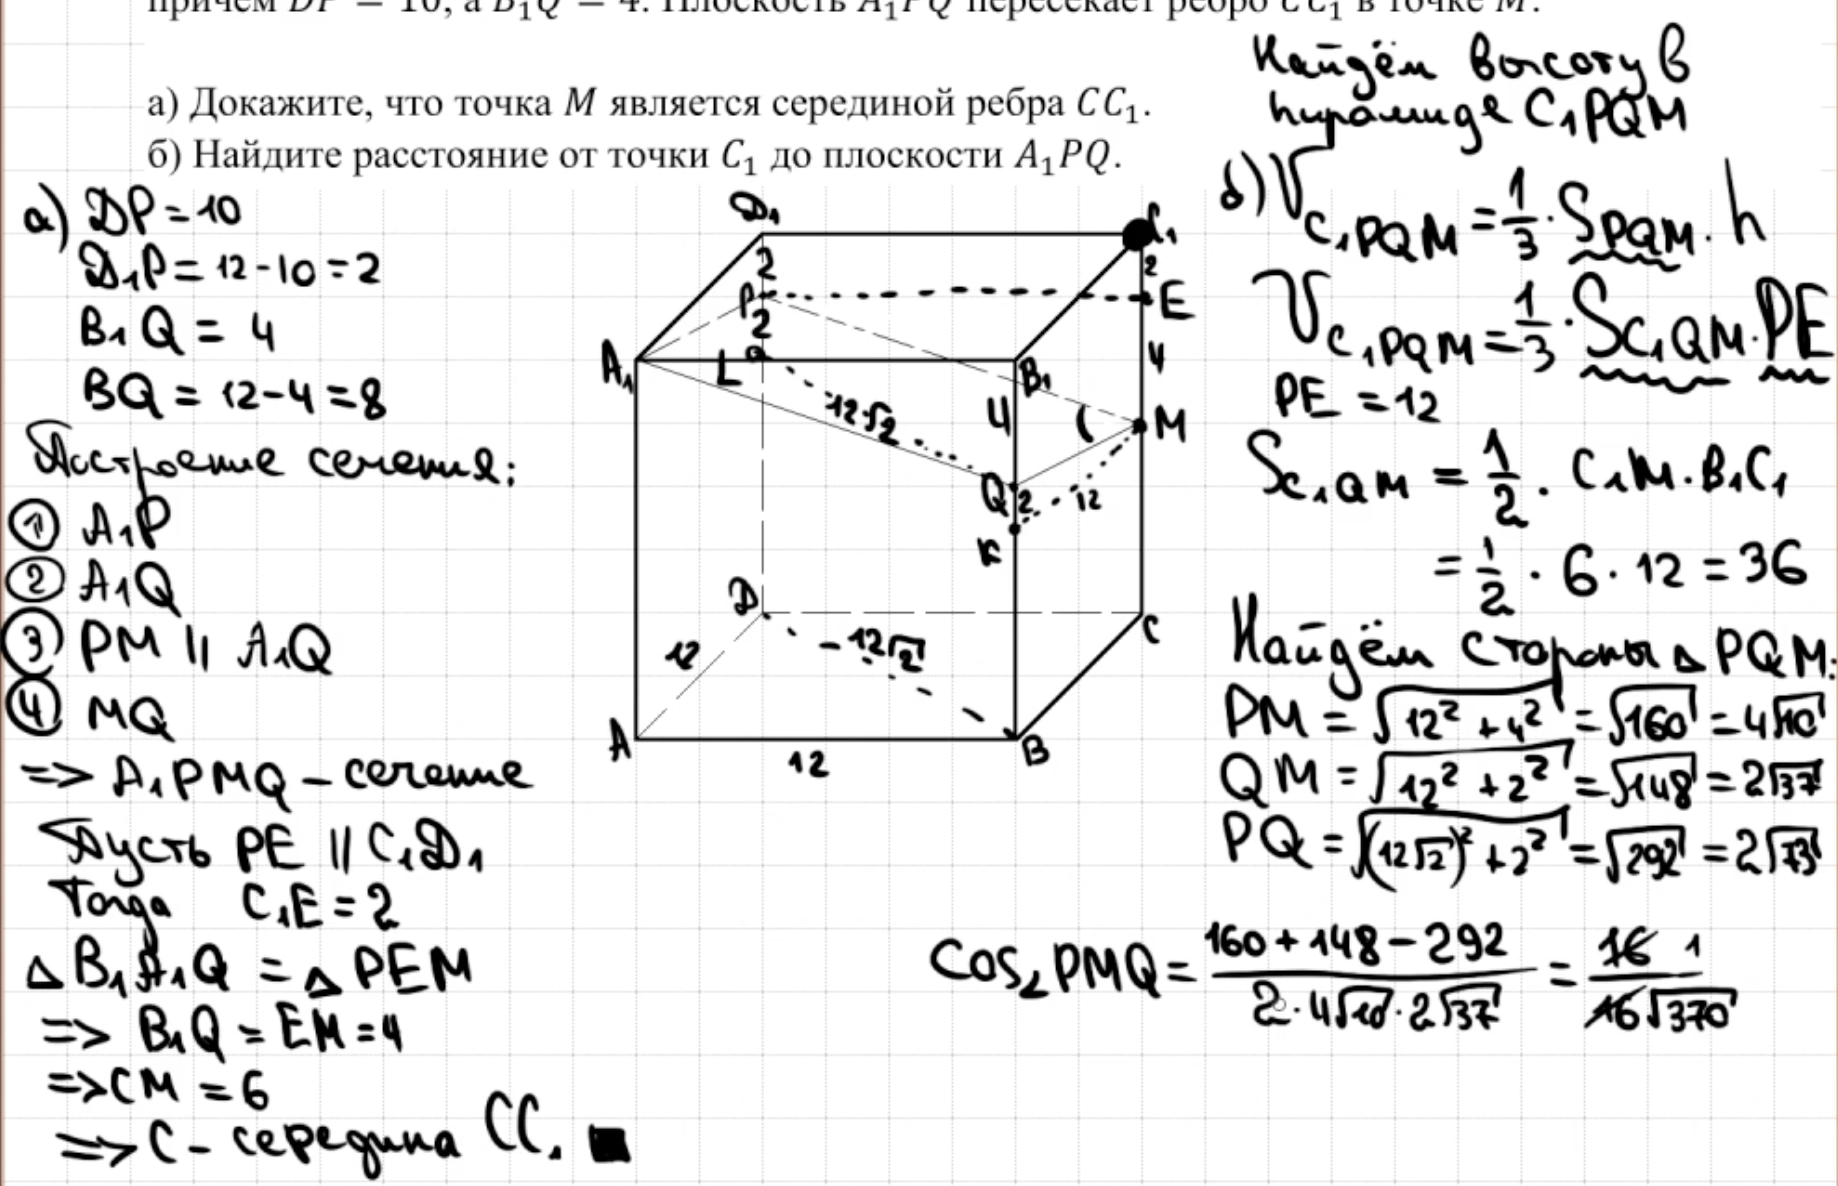 причём DP = 10, а B₁Q = 4. Плоскость A₁PQ пересекает ребро CC₁ в точке M.
а) Докажите, что точка M является серединой ребра CC₁.
б) Найдите расстояние от точки C₁ до плоскости A₁PQ.
а) DP = 10
D₁P = 12 - 10 = 2
B₁Q = 4
BQ = 12 - 4 = 8
Построение сечения:
① A₁P
② A₁Q
③ PM || A₁Q
④ MQ
=> A₁PMQ - сечение
Пусть PE || C₁D₁
Тогда C₁E = 2
△B₁A₁Q = △PEM
=> B₁Q = EM = 4
=> CM = 6
=> C - середина CC₁ ■
D₁
C₁
2
2
P
E
2
4
A₁
L
B₁
12√2
4
M
Q
2
12
K
D
C
12
12√2
A
B
12
Найдём высоту в
пирамиде C₁PQM
б) V C₁PQM = 1/3 · S PQM · h
V C₁PQM = 1/3 · S C₁QM · PE
PE = 12
S C₁QM = 1/2 · C₁M · B₁C₁
= 1/2 · 6 · 12 = 36
Найдём стороны △PQM:
PM = √(12² + 4²) = √160 = 4√10
QM = √(12² + 2²) = √148 = 2√37
PQ = √((12√2)² + 2²) = √292 = 2√73
Cos∠PMQ = (160 + 148 - 292)/(2 · 4√10 · 2√37) = 16 1/(16√370)